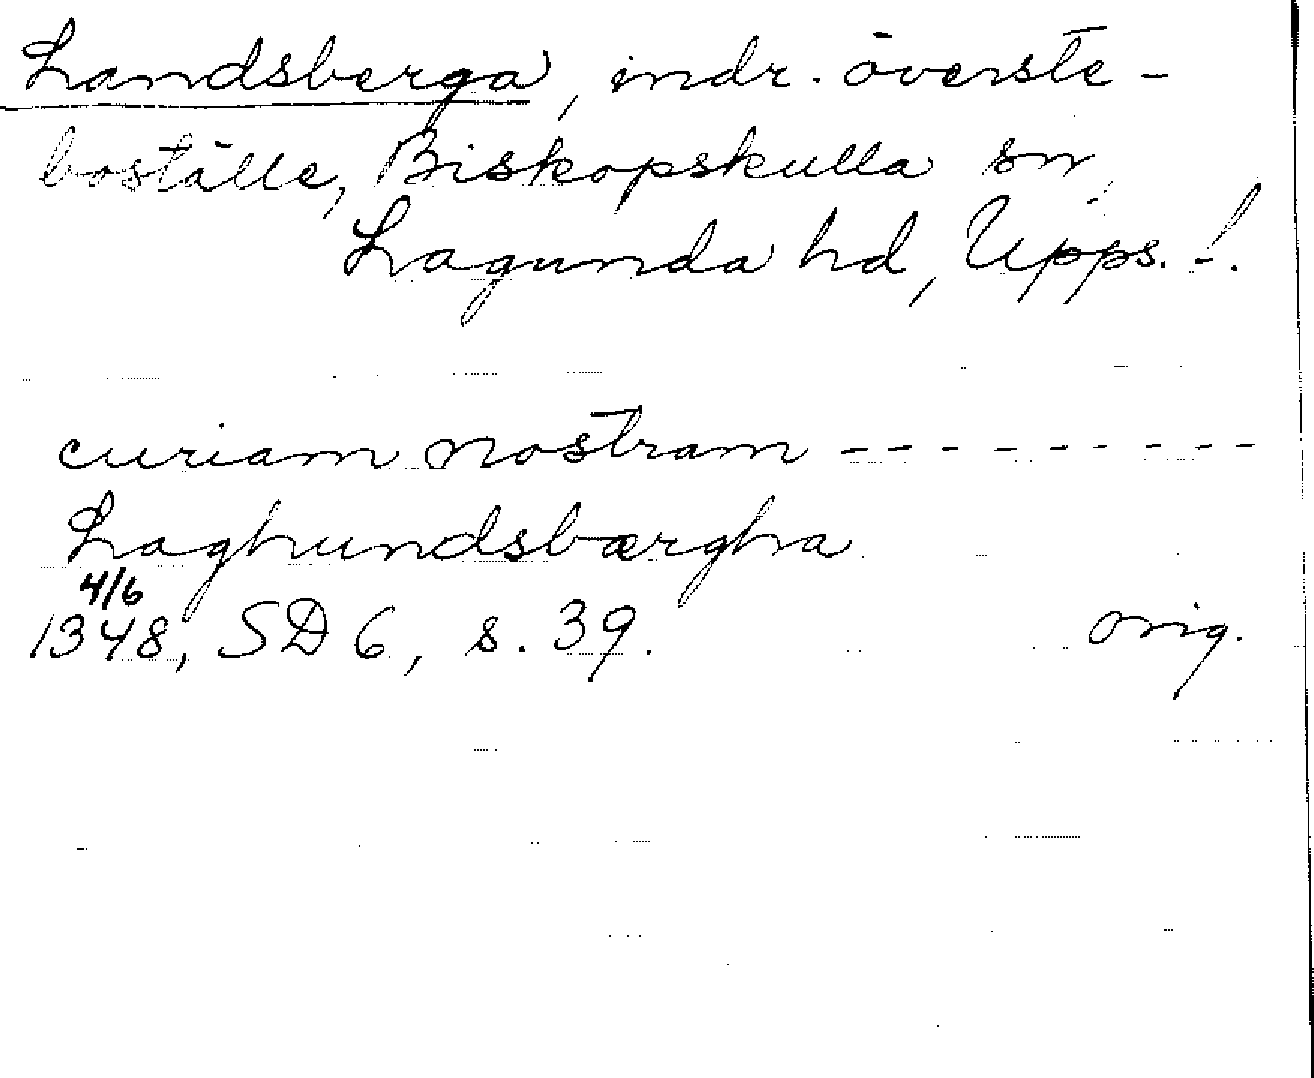 Landsberga, indr. överste-
boställe, Biskopskulla sn,
Lagunda hd, Upps. l.
curiam nostram - - - - - - - - -
Laghundsbærgha
4/6
1348, SD 6, s. 39. orig.